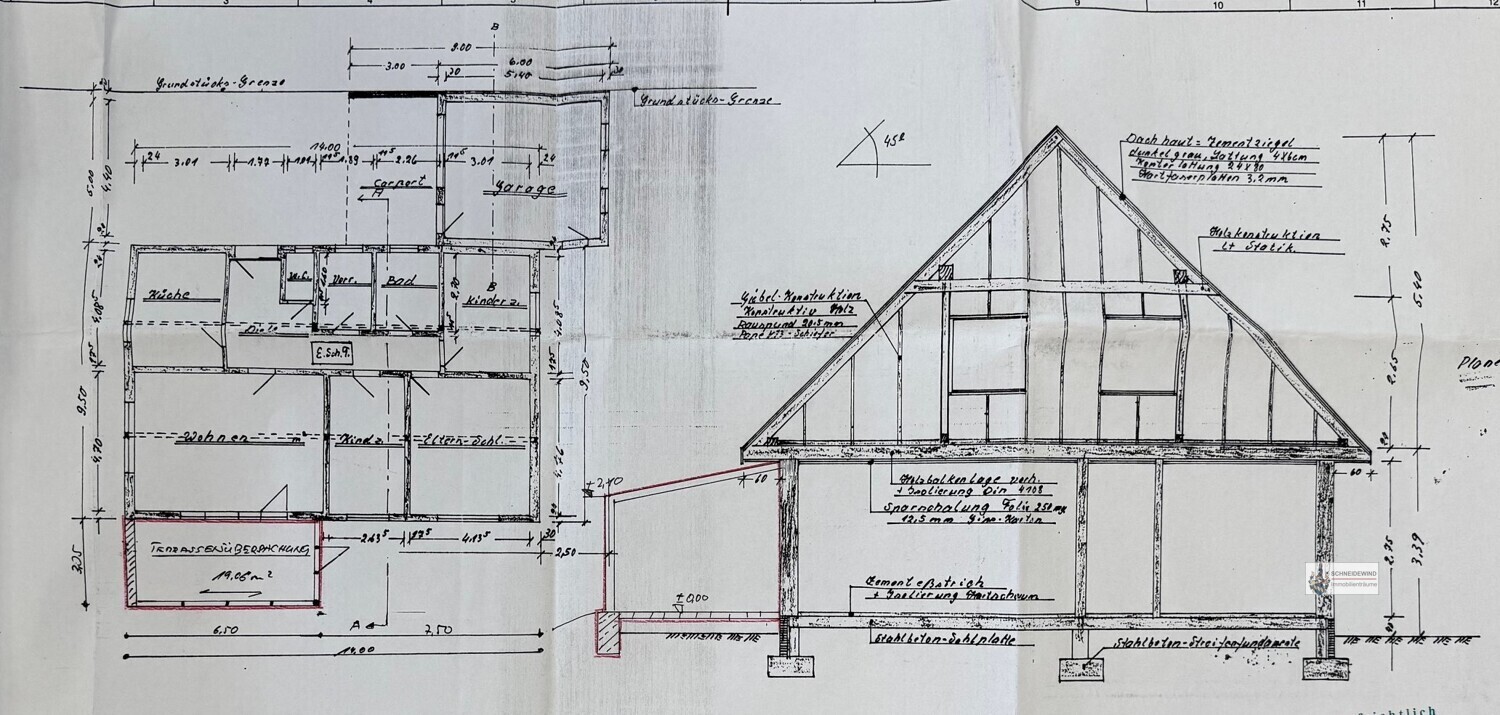 3
4
9
10
11
12
B
9.00
3.00
6.00
30
5.40
30
Grundstücks-Grenze
Grundstücks-Grenze
14.00
24
3.01
1.77
1.01
2.26
3.01
24
5.00
4.40
Carport
A
Garage
Küche
W.C.
Vorr.
Bad
B
Kinderz.
Diele
E.Sch.9.
2.70
4.08⁵
4.08⁵
9.50
9.50
4.70
4.76
Wohnen
Kind.
Eltern-Schl.
TERRASSENÜBERDACHUNG
19,06 m²
2.63⁵
17⁵
4.13⁵
30
2,50
6,50
A
7,50
14,00
45°
Dachhaut = Zementziegel
dunkelgrau, Lattung 4x6cm
Konterlattung 24x80
Hartfaserplatten 3,2mm
Holzkonstruktion
lt Statik.
Giebel-Konstruktion
Konstruktiv Holz
Rauspund 20.5 mm
2.75
5.40
2.65
Plane
60
60
Holzbalkenlage verh.
+ Isolierung Din 4108
Sparschalung Folie 250 my
12,5 mm Gips-Karton
Zementeßtrich
+ Isolierung Hartschaum
±0,00
Stahlbeton-Sohlplatte
Stahlbeton-Streifenfundamente
2.75
3.39
SCHNEIDEWIND
Immobilienträume